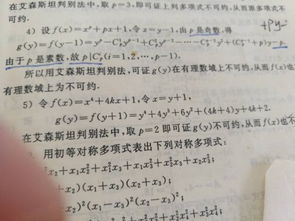 在艾森斯坦判别法中,取p=3,即可证上列多项式不可约,从而原多项式不可
4) 设f(x)=xᵖ+px+1,令x=y-1,由p是奇数,得
g(y)=f(y-1)=yᵖ-C¹ₚyᵖ⁻¹+C²ₚyᵖ⁻²-…-Cᵖ⁻²ₚy²+(Cᵖ⁻¹ₚ+p)y-
+py-
由于p是素数,故p|Cⁱₚ(i=1,2,…,p-1).
所以用艾森斯坦判别法,可证g(y)在有理数域上不可约,从而f(x)也
有理数域上为不可约.
5) 令f(x)=x⁴+4kx+1,令x=y+1,
g(y)=f(y+1)=y⁴+4y³+6y²+(4k+4)y+4k+2.
在艾森斯坦判别法中,取p=2即可证g(y)不可约,从而f(x)也不
用初等对称多项式表出下列对称多项式:
x₂+x₁x₂²+x₁²x₃+x₁x₃²+x₂²x₃+x₂x₃²;
+x₂)(x₁+x₃)(x₂+x₃);
-x₂)²(x₁-x₃)²(x₂-x₃)²;